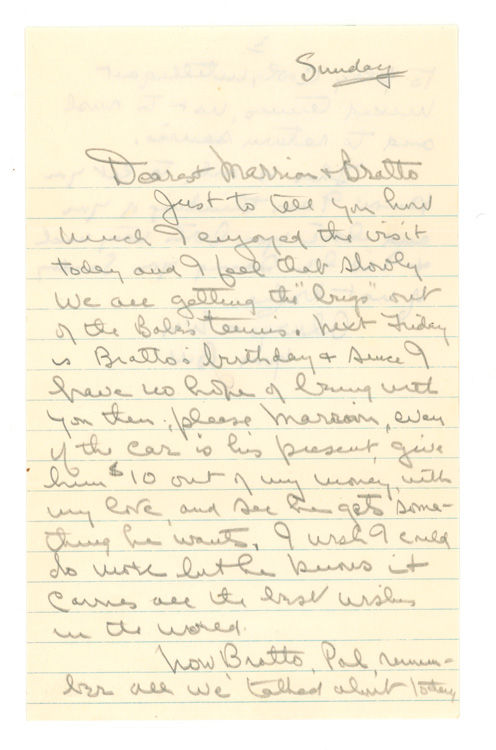 Sunday
Dearest Marrion & Bratto
Just to tell you how
much I enjoyed the visit
today and I feel that slowly
we are getting the "bugs" out
of the Babe's tennis. Next Friday
is Bratto's birthday & since I
have no hope of being with
you then, please Marrion, even
if the car is his present, give
him $10 out of my money, with
my love, and see he gets some-
thing he wants. I wish I could
do more but he knows it
carries all the best wishes
in the world.
Now Bratto, Pal, remem-
ber all we talked about today